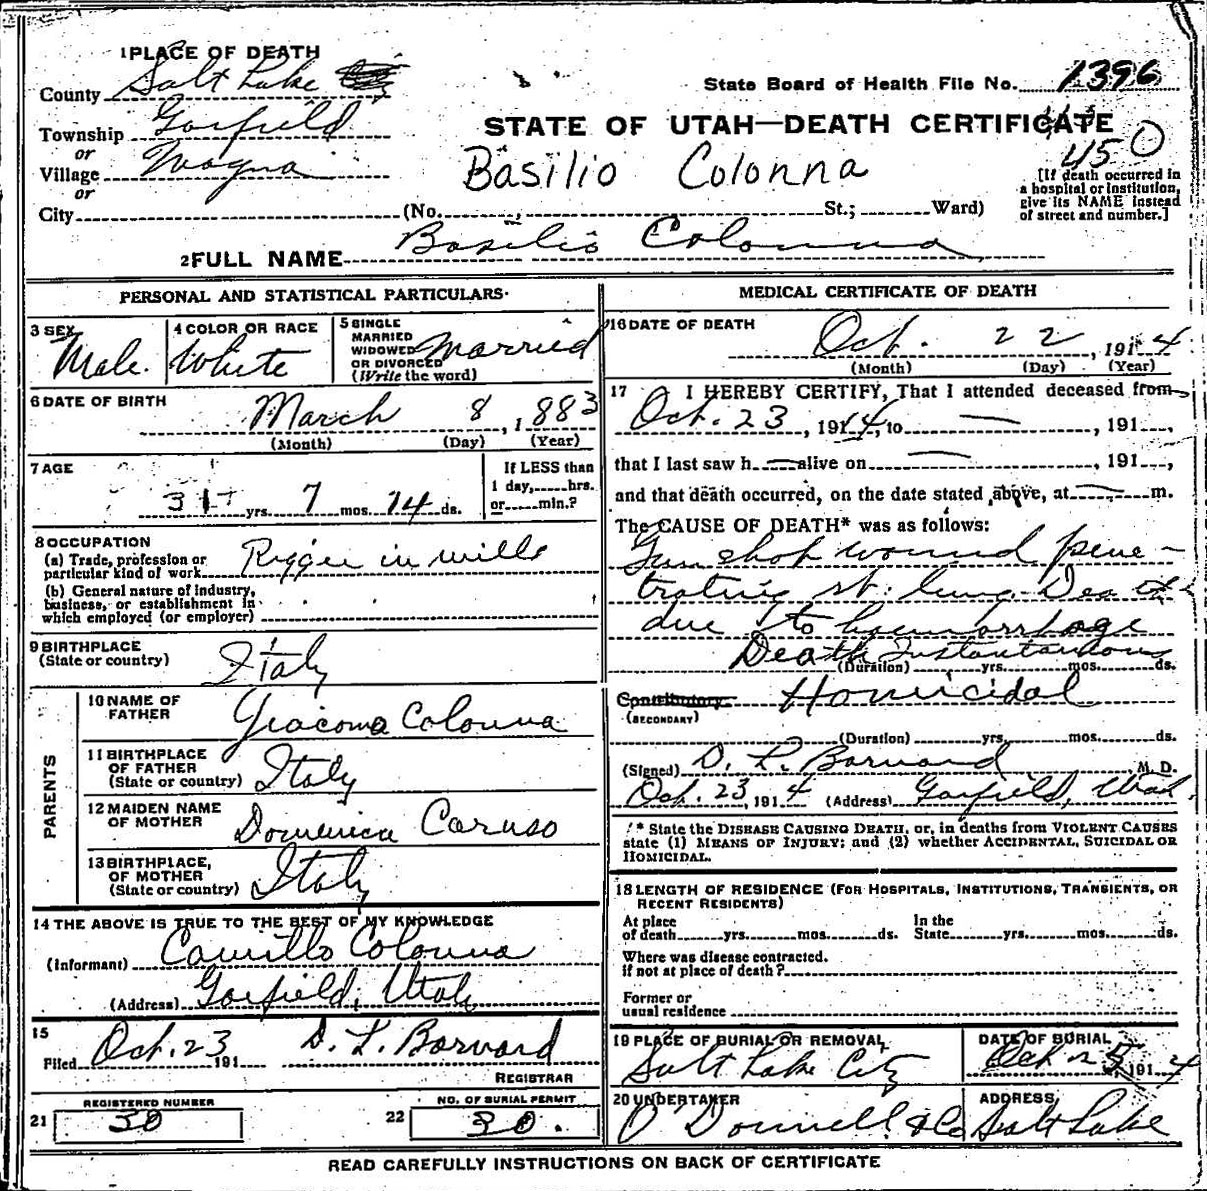 1 PLACE OF DEATH
County Salt Lake
State Board of Health File No. 1396
Township Garfield
or
Village Magna
or
City (No. St.; Ward)
STATE OF UTAH—DEATH CERTIFICATE
450
Basilio Colonna
[If death occurred in
a hospital or institution,
give its NAME instead
of street and number.]
2 FULL NAME Basilio Colonna
PERSONAL AND STATISTICAL PARTICULARS
3 SEX
Male.
4 COLOR OR RACE
White
5 SINGLE
MARRIED
WIDOWED
OR DIVORCED
(Write the word)
Married
6 DATE OF BIRTH
March 8, 1883
(Month) (Day) (Year)
7 AGE
31 yrs. 7 mos. 14 ds.
If LESS than
1 day, hrs.
or min.?
8 OCCUPATION
(a) Trade, profession or
particular kind of work Rigger in mills
(b) General nature of industry,
business, or establishment in
which employed (or employer)
9 BIRTHPLACE
(State or country)
Italy
PARENTS
10 NAME OF
FATHER
Giacomo Colonna
11 BIRTHPLACE
OF FATHER
(State or country)
Italy
12 MAIDEN NAME
OF MOTHER
Domenica Caruso
13 BIRTHPLACE,
OF MOTHER
(State or country)
Italy
14 THE ABOVE IS TRUE TO THE BEST OF MY KNOWLEDGE
(Informant) Camillo Colonna
(Address) Garfield, Utah
15
Filed Oct. 23 191 D. L. Barnard
REGISTRAR
REGISTERED NUMBER
21 30
NO. OF BURIAL PERMIT
22 30.
MEDICAL CERTIFICATE OF DEATH
16 DATE OF DEATH
Oct. 22, 1914
(Month) (Day) (Year)
17 I HEREBY CERTIFY, That I attended deceased from
Oct. 23, 1914, to , 191 ,
that I last saw h alive on , 191 ,
and that death occurred, on the date stated above, at m.
The CAUSE OF DEATH* was as follows:
Gun shot wound pene-
trating rt. lung. Death
due to haemorrhage
Death Instantaneous
(Duration) yrs. mos. ds.
Contributory Homicidal
(SECONDARY)
(Duration) yrs. mos. ds.
(Signed) D. L. Barnard M. D.
Oct. 23, 1914 (Address) Garfield, Utah.
* State the DISEASE CAUSING DEATH, or, in deaths from VIOLENT CAUSES
state (1) MEANS OF INJURY; and (2) whether ACCIDENTAL, SUICIDAL OR
HOMICIDAL.
18 LENGTH OF RESIDENCE (FOR HOSPITALS, INSTITUTIONS, TRANSIENTS, OR
RECENT RESIDENTS)
At place
of death yrs. mos. ds.
In the
State yrs. mos. ds.
Where was disease contracted.
if not at place of death?
Former or
usual residence
19 PLACE OF BURIAL OR REMOVAL
Salt Lake City
DATE OF BURIAL
Oct 25 1914
20 UNDERTAKER
O'Donnell & Co
ADDRESS
Salt Lake
READ CAREFULLY INSTRUCTIONS ON BACK OF CERTIFICATE